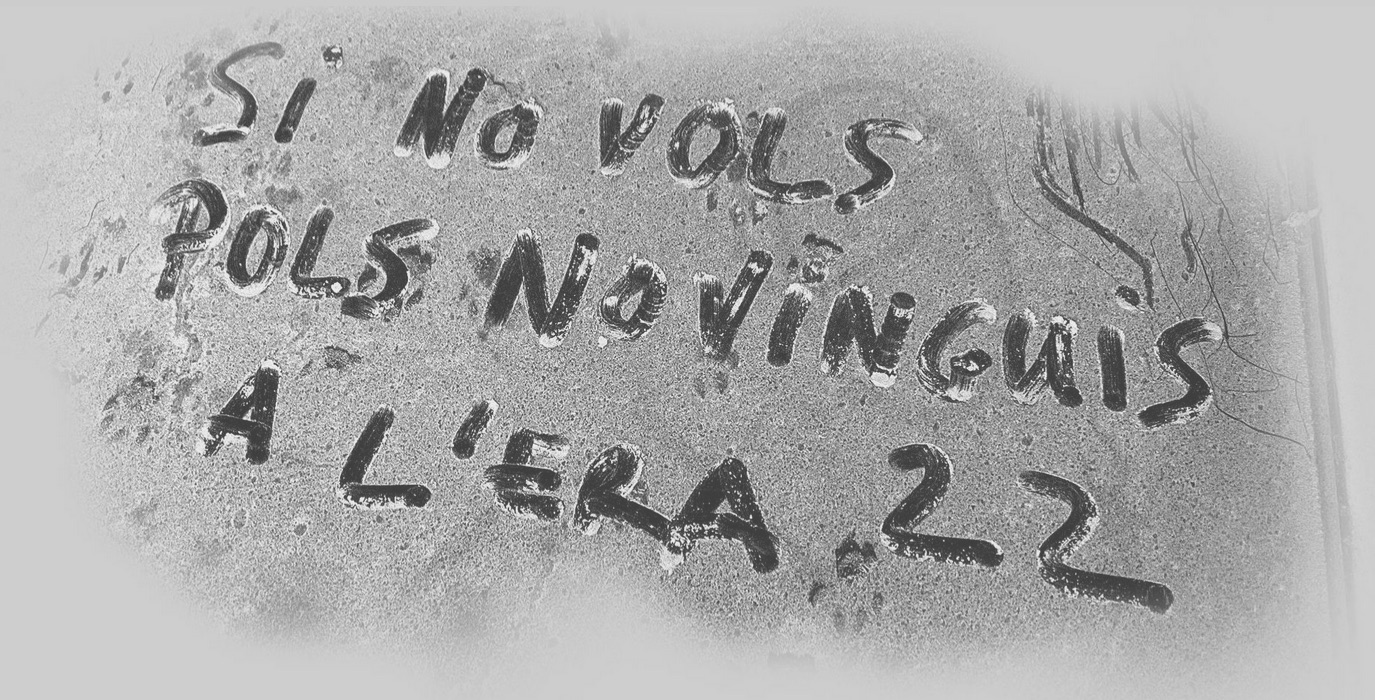 Si No VOLS
POLS No ViNGUiS
A L'ERA 22